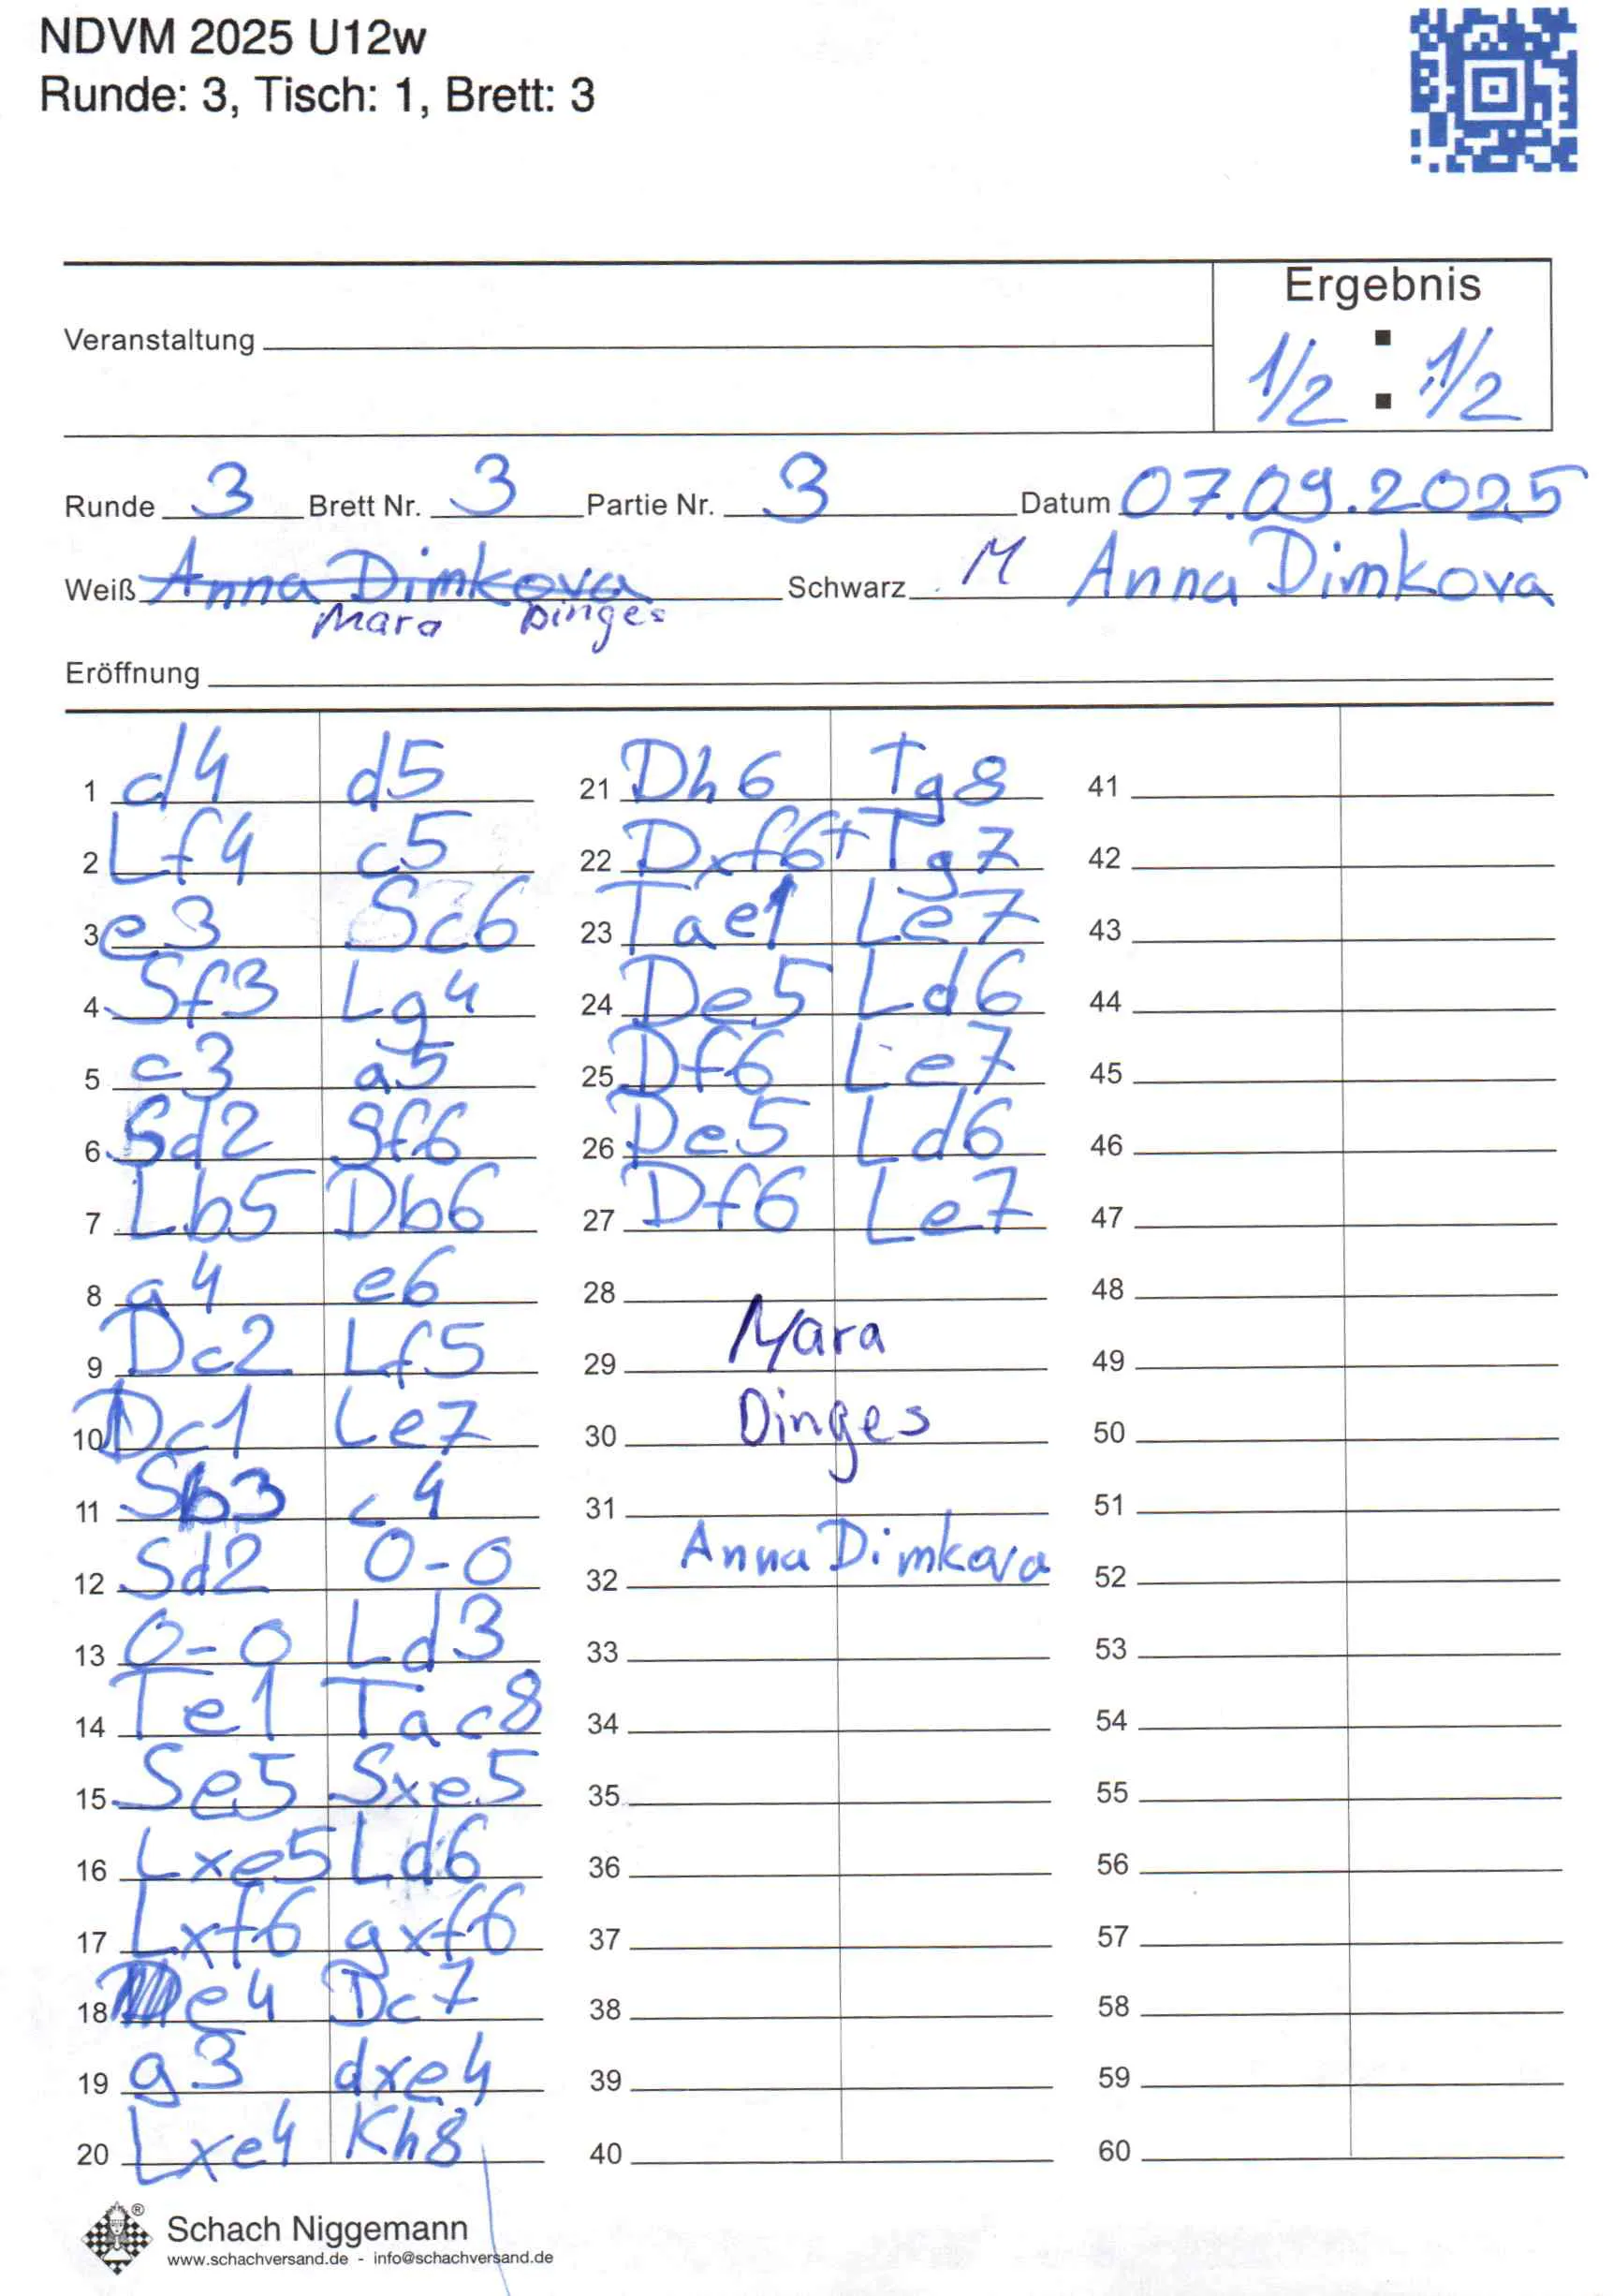 NDVM 2025 U12w
Runde: 3, Tisch: 1, Brett: 3
Ergebnis
Veranstaltung
1/2 : 1/2
Runde 3 Brett Nr. 3 Partie Nr. 3 Datum 07.09.2025
Weiß Anna Dimkova Schwarz M Anna Dimkova
Mara Dinges
Eröffnung
1 d4 d5
2 Lf4 c5
3 e3 Sc6
4 Sf3 Lg4
5 c3 a5
6 Sd2 Sf6
7 Lb5 Db6
8 a4 e6
9 Dc2 Lf5
10 Dc1 Le7
11 Sb3 c4
12 Sd2 0-0
13 0-0 Ld3
14 Te1 Tac8
15 Se5 Sxe5
16 Lxe5 Ld6
17 Lxf6 gxf6
18 e4 Dc7
19 g3 dxe4
20 Lxe4 Kh8
21 Dh6 Tg8
22 Dxf6+ Tg7
23 Tae1 Le7
24 De5 Ld6
25 Df6 Le7
26 De5 Ld6
27 Df6 Le7
28
29 Mara
30 Dinges
31
32 Anna Dimkova
33
34
35
36
37
38
39
40
41
42
43
44
45
46
47
48
49
50
51
52
53
54
55
56
57
58
59
60
Schach Niggemann
www.schachversand.de - info@schachversand.de